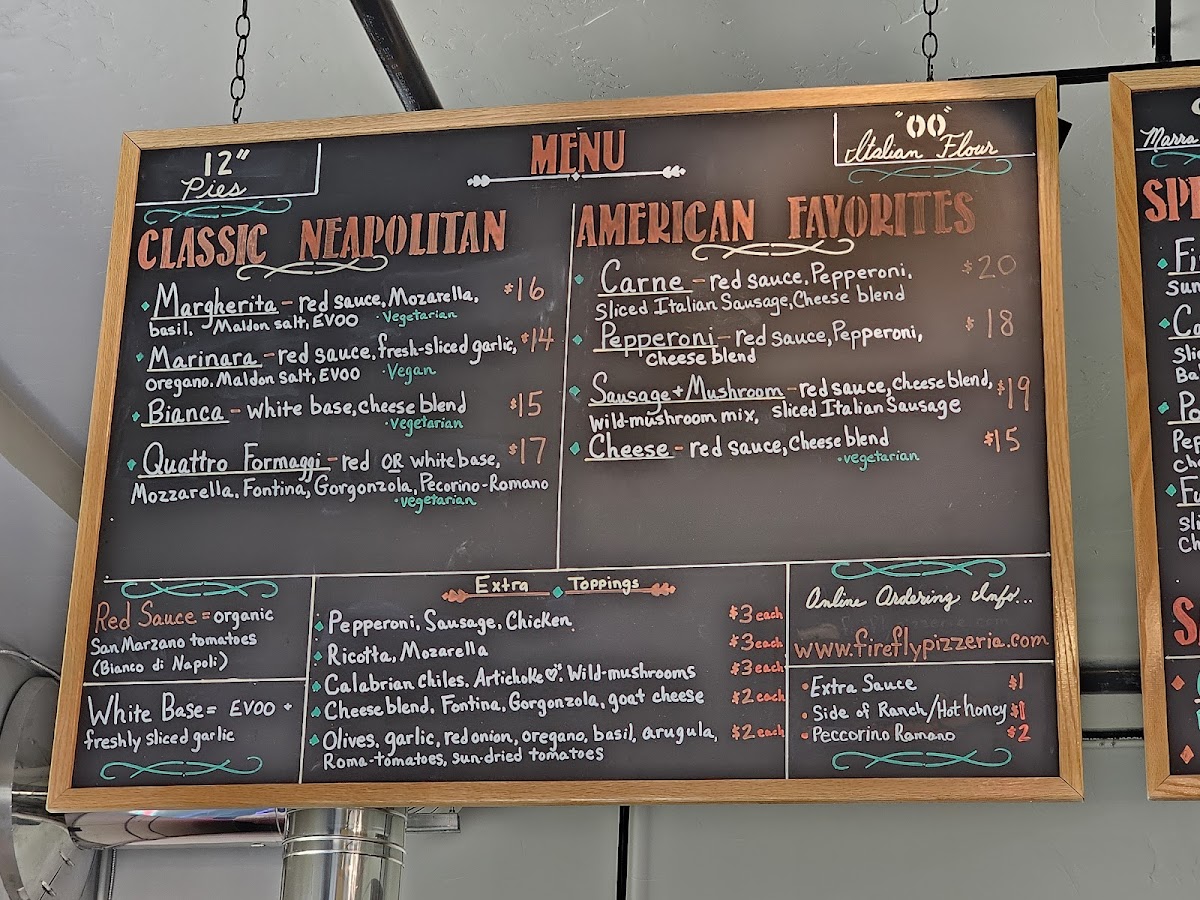 12"
Pies
MENU
"00"
Italian Flour
CLASSIC NEAPOLITAN
Margherita - red sauce, Mozarella, $16
basil, Maldon salt, EVOO · Vegetarian
Marinara - red sauce, fresh-sliced garlic, $14
oregano, Maldon salt, EVOO · Vegan
Bianca - white base, cheese blend $15
· Vegetarian
Quattro Formaggi - red OR white base, $17
Mozzarella, Fontina, Gorgonzola, Pecorino-Romano
· vegetarian
AMERICAN FAVORITES
Carne - red sauce, Pepperoni, $20
Sliced Italian Sausage, Cheese blend
Pepperoni - red sauce, Pepperoni, $18
cheese blend
Sausage + Mushroom - red sauce, Cheese blend, $19
wild-mushroom mix, sliced Italian Sausage
Cheese - red sauce, Cheese blend $15
· vegetarian
Red Sauce = organic
San Marzano tomatoes
(Bianco di Napoli)
White Base = EVOO +
freshly sliced garlic
Extra Toppings
Pepperoni, Sausage, Chicken $3 each
Ricotta, Mozarella $3 each
Calabrian chiles, Artichoke ♡, Wild-mushrooms $3 each
Cheese blend, Fontina, Gorgonzola, goat cheese $2 each
Olives, garlic, red onion, oregano, basil, arugula, $2 each
Roma-tomatoes, sun-dried tomatoes
Online Ordering Info...
www.fireflypizzeria.com
· Extra Sauce $1
· Side of Ranch/Hot honey $1
· Peccorino Romano $2
Marra